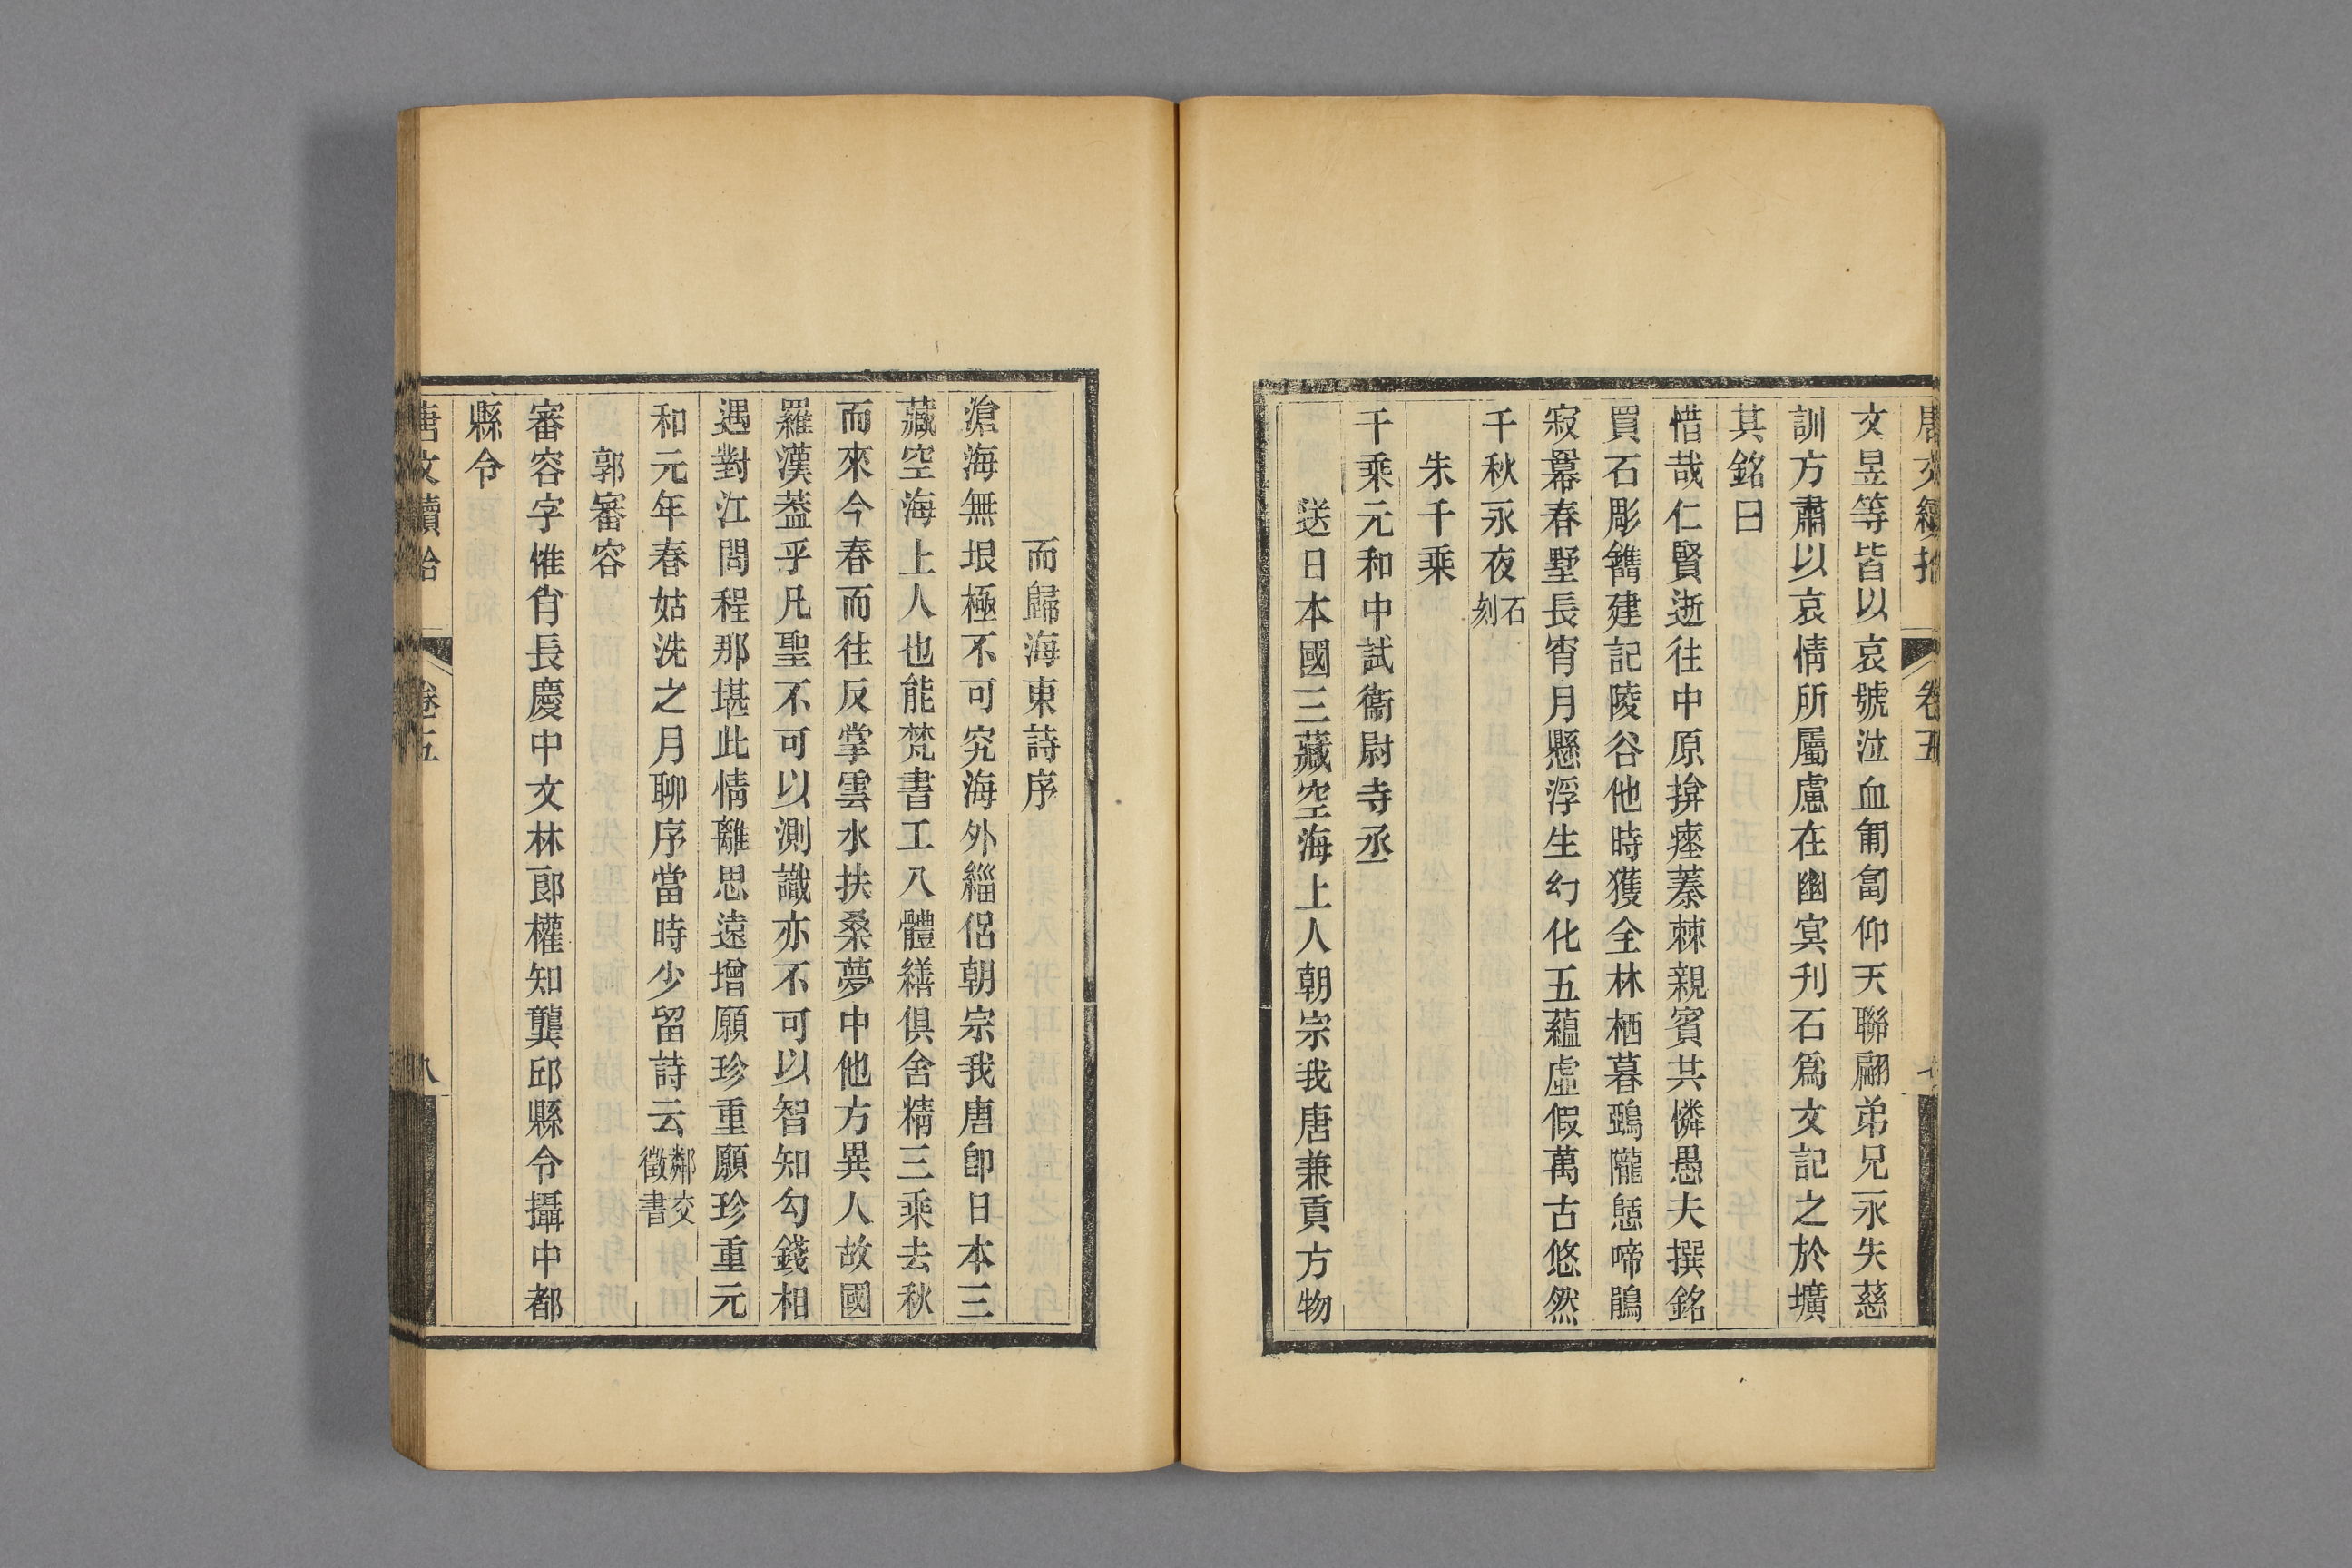 唐文續拾 卷五 七
文昱等皆以哀號泣血匍匐仰天聯翩弟兄永失慈
訓方肅以哀情所屬慮在幽冥刋石爲文記之於壙
其銘曰
惜哉仁賢逝往中原揜瘞蓁棘親賓共憐愚夫撰銘
買石彫鐫建記陵谷他時獲全林栖暮鵶隴㥛啼鵑
寂羃春墅長宵月懸浮生幻化五蘊虛假萬古悠然
千秋永夜石刻
朱千乘
千乘元和中試衞尉寺丞
送日本國三藏空海上人朝宗我唐兼貢方物
而歸海東詩序
滄海無垠極不可究海外緇侶朝宗我唐卽日本三
藏空海上人也能梵書工八體繕俱舍精三乘去秋
而來今春而往反掌雲水扶桑夢中他方異人故國
羅漢葢乎凡聖不可以測識亦不可以智知勾錢相
遇對江問程那堪此情離思遠增願珍重願珍重元
和元年春姑洗之月聊序當時少留詩云鄰交徵書
郭審容
審容字惟肖長慶中文林郎權知龔邱縣令攝中都
縣令
唐文續拾 卷五 八